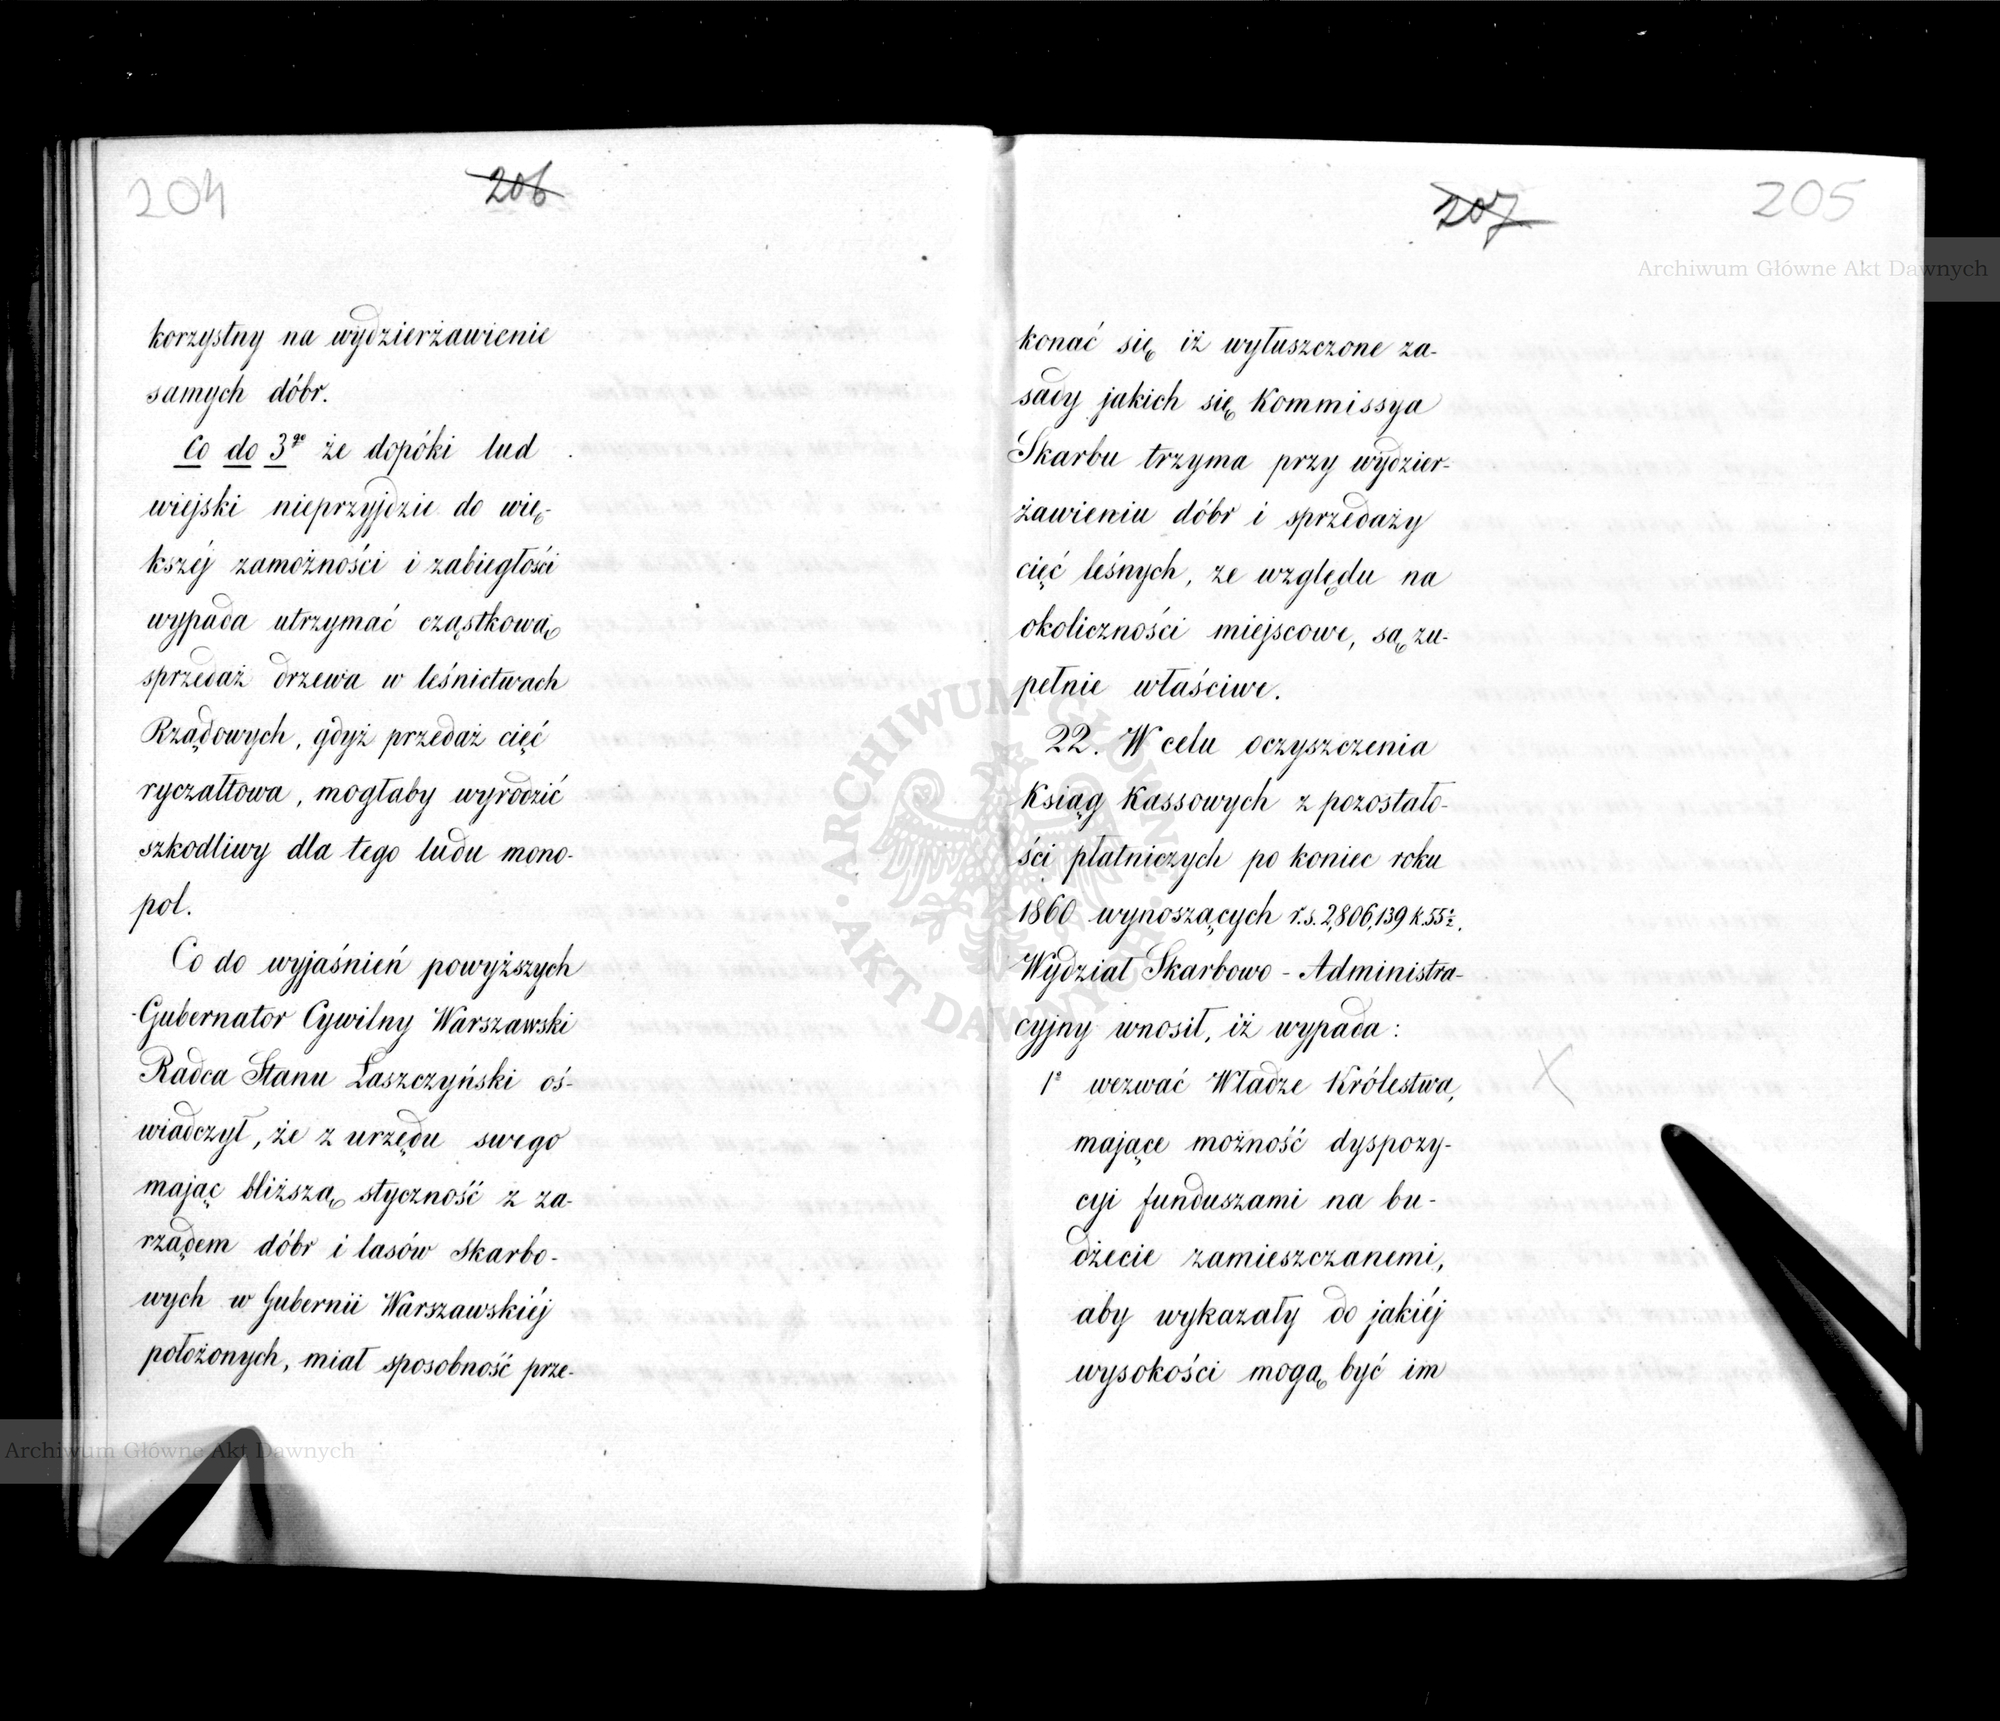 204
206
korzystny na wydzierżawienie
samych dóbr.
Co do 3go że dopóki lud
wiejski nieprzyjdzie do wię-
kszéj zamożności i zabiegłości
wypada utrzymać cząstkową
sprzedaż drzewa w leśnictwach
Rządowych, gdyż przedaż cięć
ryczałtowa, mogłaby wyrodzić
szkodliwy dla tego ludu mono-
pol.
Co do wyjaśnień powyższych
Gubernator Cywilny Warszawski
Radca Stanu Łaszczyński oś-
wiadczył, że z urzędu swego
mając bliższą styczność z za-
rządem dóbr i lasów Skarbo-
wych w Gubernii Warszawskiéj
położonych, miał sposobność prze-
207
205
Archiwum Główne Akt Dawnych
konać się iż wyłuszczone za-
sady jakich się Kommissya
Skarbu trzyma przy wydzier-
żawieniu dóbr i sprzedaży
cięć leśnych, ze względu na
okoliczności miejscowe, są zu-
pełnie właściwe.
22. W celu oczyszczenia
Ksiąg Kassowych z pozostało-
ści płatniczych po koniec roku
1860 wynoszących r.s. 2,806,139 k. 55½,
Wydział Skarbowo - Administra-
cyjny wnosił, iż wypada:
1º wezwać Władze Królestwa,
mające możność dyspozy-
cyi funduszami na bu-
dżecie zamieszczanemi,
aby wykazały do jakiéj
wysokości mogą być im
Archiwum Główne Akt Dawnych
ARCHIWUM GŁÓWNE AKT DAWNYCH